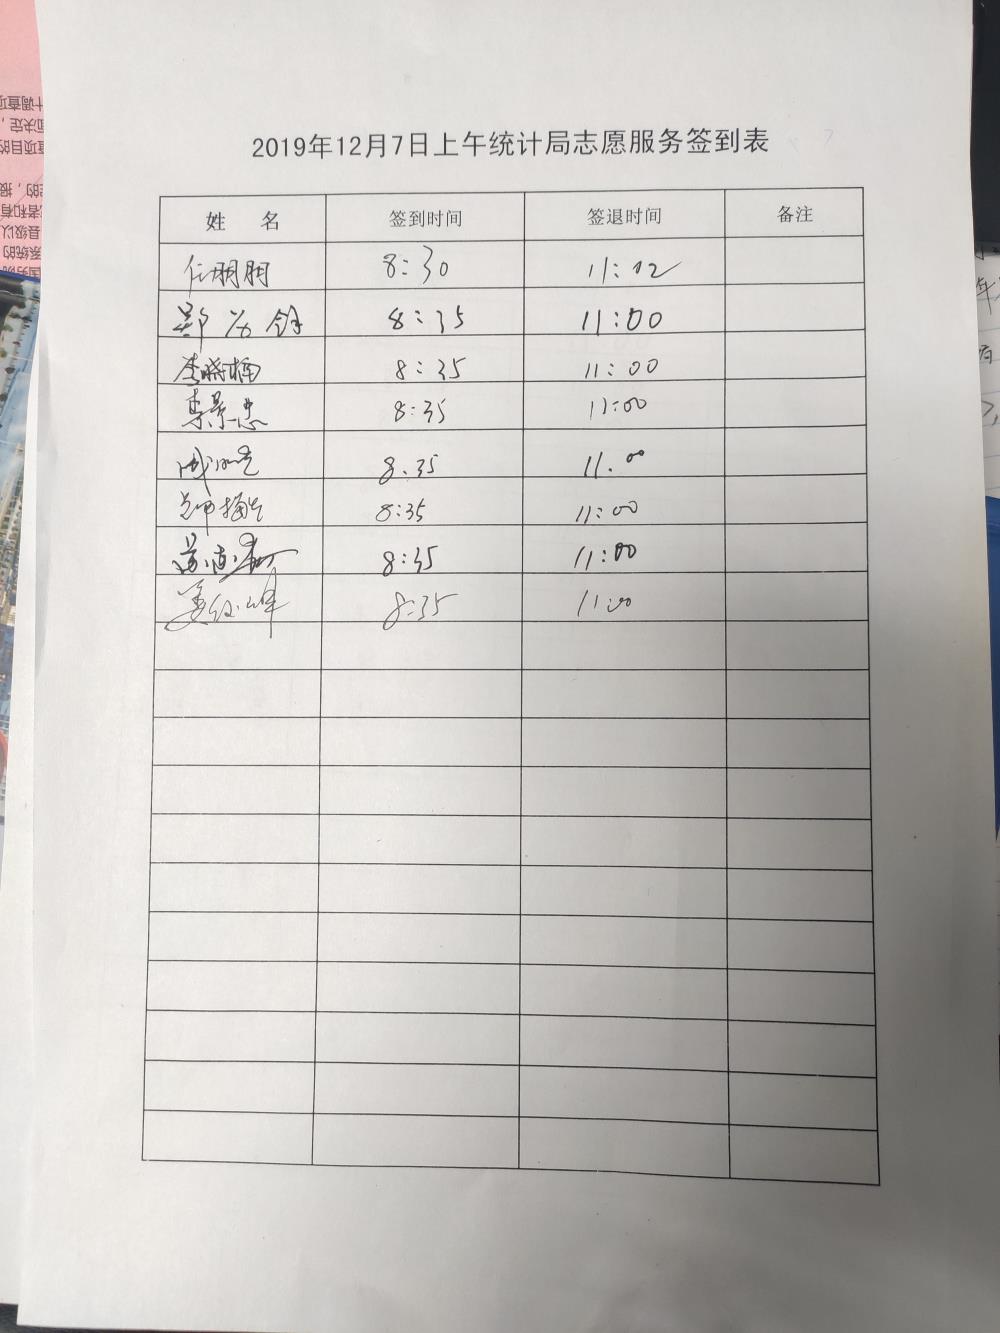 2019年12月7日上午统计局志愿服务签到表
姓 名 签到时间 签退时间 备注
任朋朋 8:30 11:02
郑 8:35 11:00
李晓楠 8:35 11:00
李景忠 8:35 11:00
8.35 11.00
8:35 11:00
8:35 11:00
姜红峰 8:35 11:00